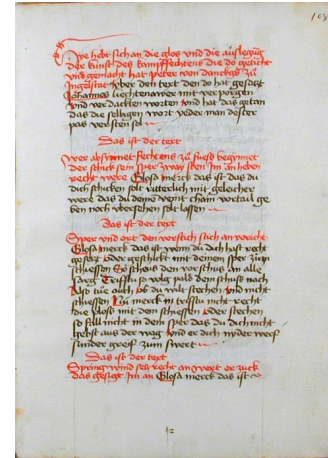 108
Hye hebt sich an die glos vnd die auslegüg
der kunst des kampffechtens die do geticht
vnd gemacht hat peter von danckgs zu
Ingelstat vber den text den do hat gesetzt
Johannes liechtenawer mit verporgen
vnd verdackten worten vnd hat das getan
das die selbigen wort yeder man dester
pas versten sol
Das ist der text
Wer absynnet fechtens zu fuess begynnet
der schick sein sper zway sten im an heben
recht were Glosa merck das ist das du
dich schicken solt ritterlich mit geleicher
were das du deinem veint chain vortail ge
ben noch vbersehen solt lassen
Das ist der text
Sper vnd ort den vorstich stich an vorcht
Glosa merck das ist wenn du dich hast recht
gesetzt oder geschickt mit deinem sper zum
schiessen So scheus den vorschus an alle
sarg Triffstu so volg palb dem schuss nach
Also tue auch ob du wilt stechen vnd nicht
schiessen Nu merck in triffstu nicht recht
die plöss mit dem schiessen oder stechen
so fall nicht in dem sper das du dich nicht
gebst aus der wag vnd er dich nyder werf
sunder greiff zum swert
Das ist der text
Spring wind setz recht an wert er zuck
das gesigt im an Glosa merck das ist